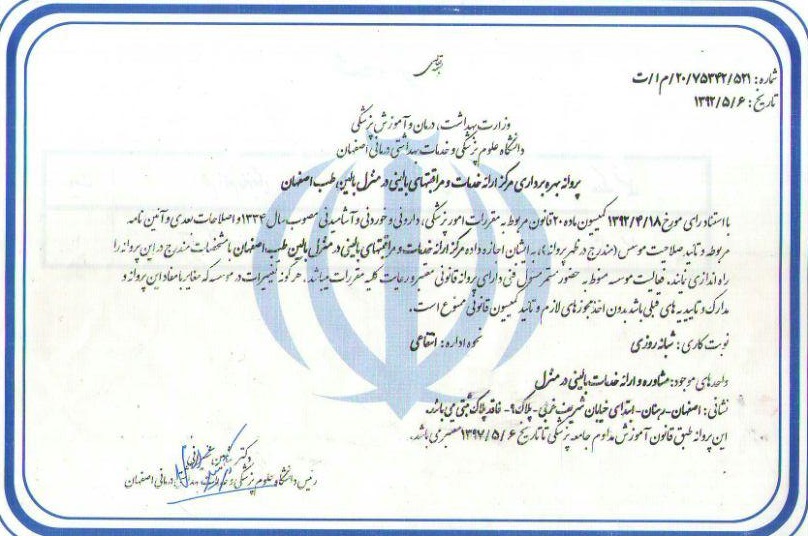 بسمه تعالی
شماره: ۲۰/۷۵۳۴۲/۵۲۱/م/۱/ت
تاریخ: ۱۳۹۲/۵/۶
وزارت بهداشت، درمان و آموزش پزشکی
دانشگاه علوم پزشکی و خدمات بهداشتی درمانی اصفهان
پروانه بهره برداری مرکز ارائه خدمات و مراقبتهای بالینی در منزل بالین طبیب اصفهان
با استناد رای مورخ ۱۳۹۲/۴/۱۸ کمیسیون ماده ۲۰ قانون مربوط به مقررات امور پزشکی، دارویی و خوردنی و آشامیدنی مصوب سال ۱۳۳۴ و اصلاحات بعدی و آئین نامه
مربوطه و تائید صلاحیت موسس (مندرج در ظهر پروانه)، به ایشان اجازه داده مرکز ارائه خدمات و مراقبتهای بالینی در منزل بالین طبیب اصفهان با مشخصات مندرج در این پروانه را
راه اندازی نمایند. فعالیت موسسه منوط به حضور مستمر مسئول فنی دارای پروانه قانونی معتبر و رعایت کلیه مقررات میباشد. هرگونه تغییرات در موسسه که مغایر با مفاد این پروانه و
مدارک و تاییدیه های قبلی باشد بدون اخذ مجوزهای لازم و تائید کمیسیون قانونی ممنوع است.
نوبت کاری: شبانه روزی نحوه اداره: انتفاعی
واحدهای موجود: مشاوره و ارائه خدمات بالینی در منزل
نشانی: اصفهان- رهنان- ابتدای خیابان شریف غربی- پلاک ۹- فاقد پلاک ثبتی می باشد.
این پروانه طبق قانون آموزش مداوم جامعه پزشکی تا تاریخ ۱۳۹۷/۵/۶ معتبر می باشد.
دکتر
رئیس دانشگاه علوم پزشکی و خدمات بهداشتی درمانی اصفهان